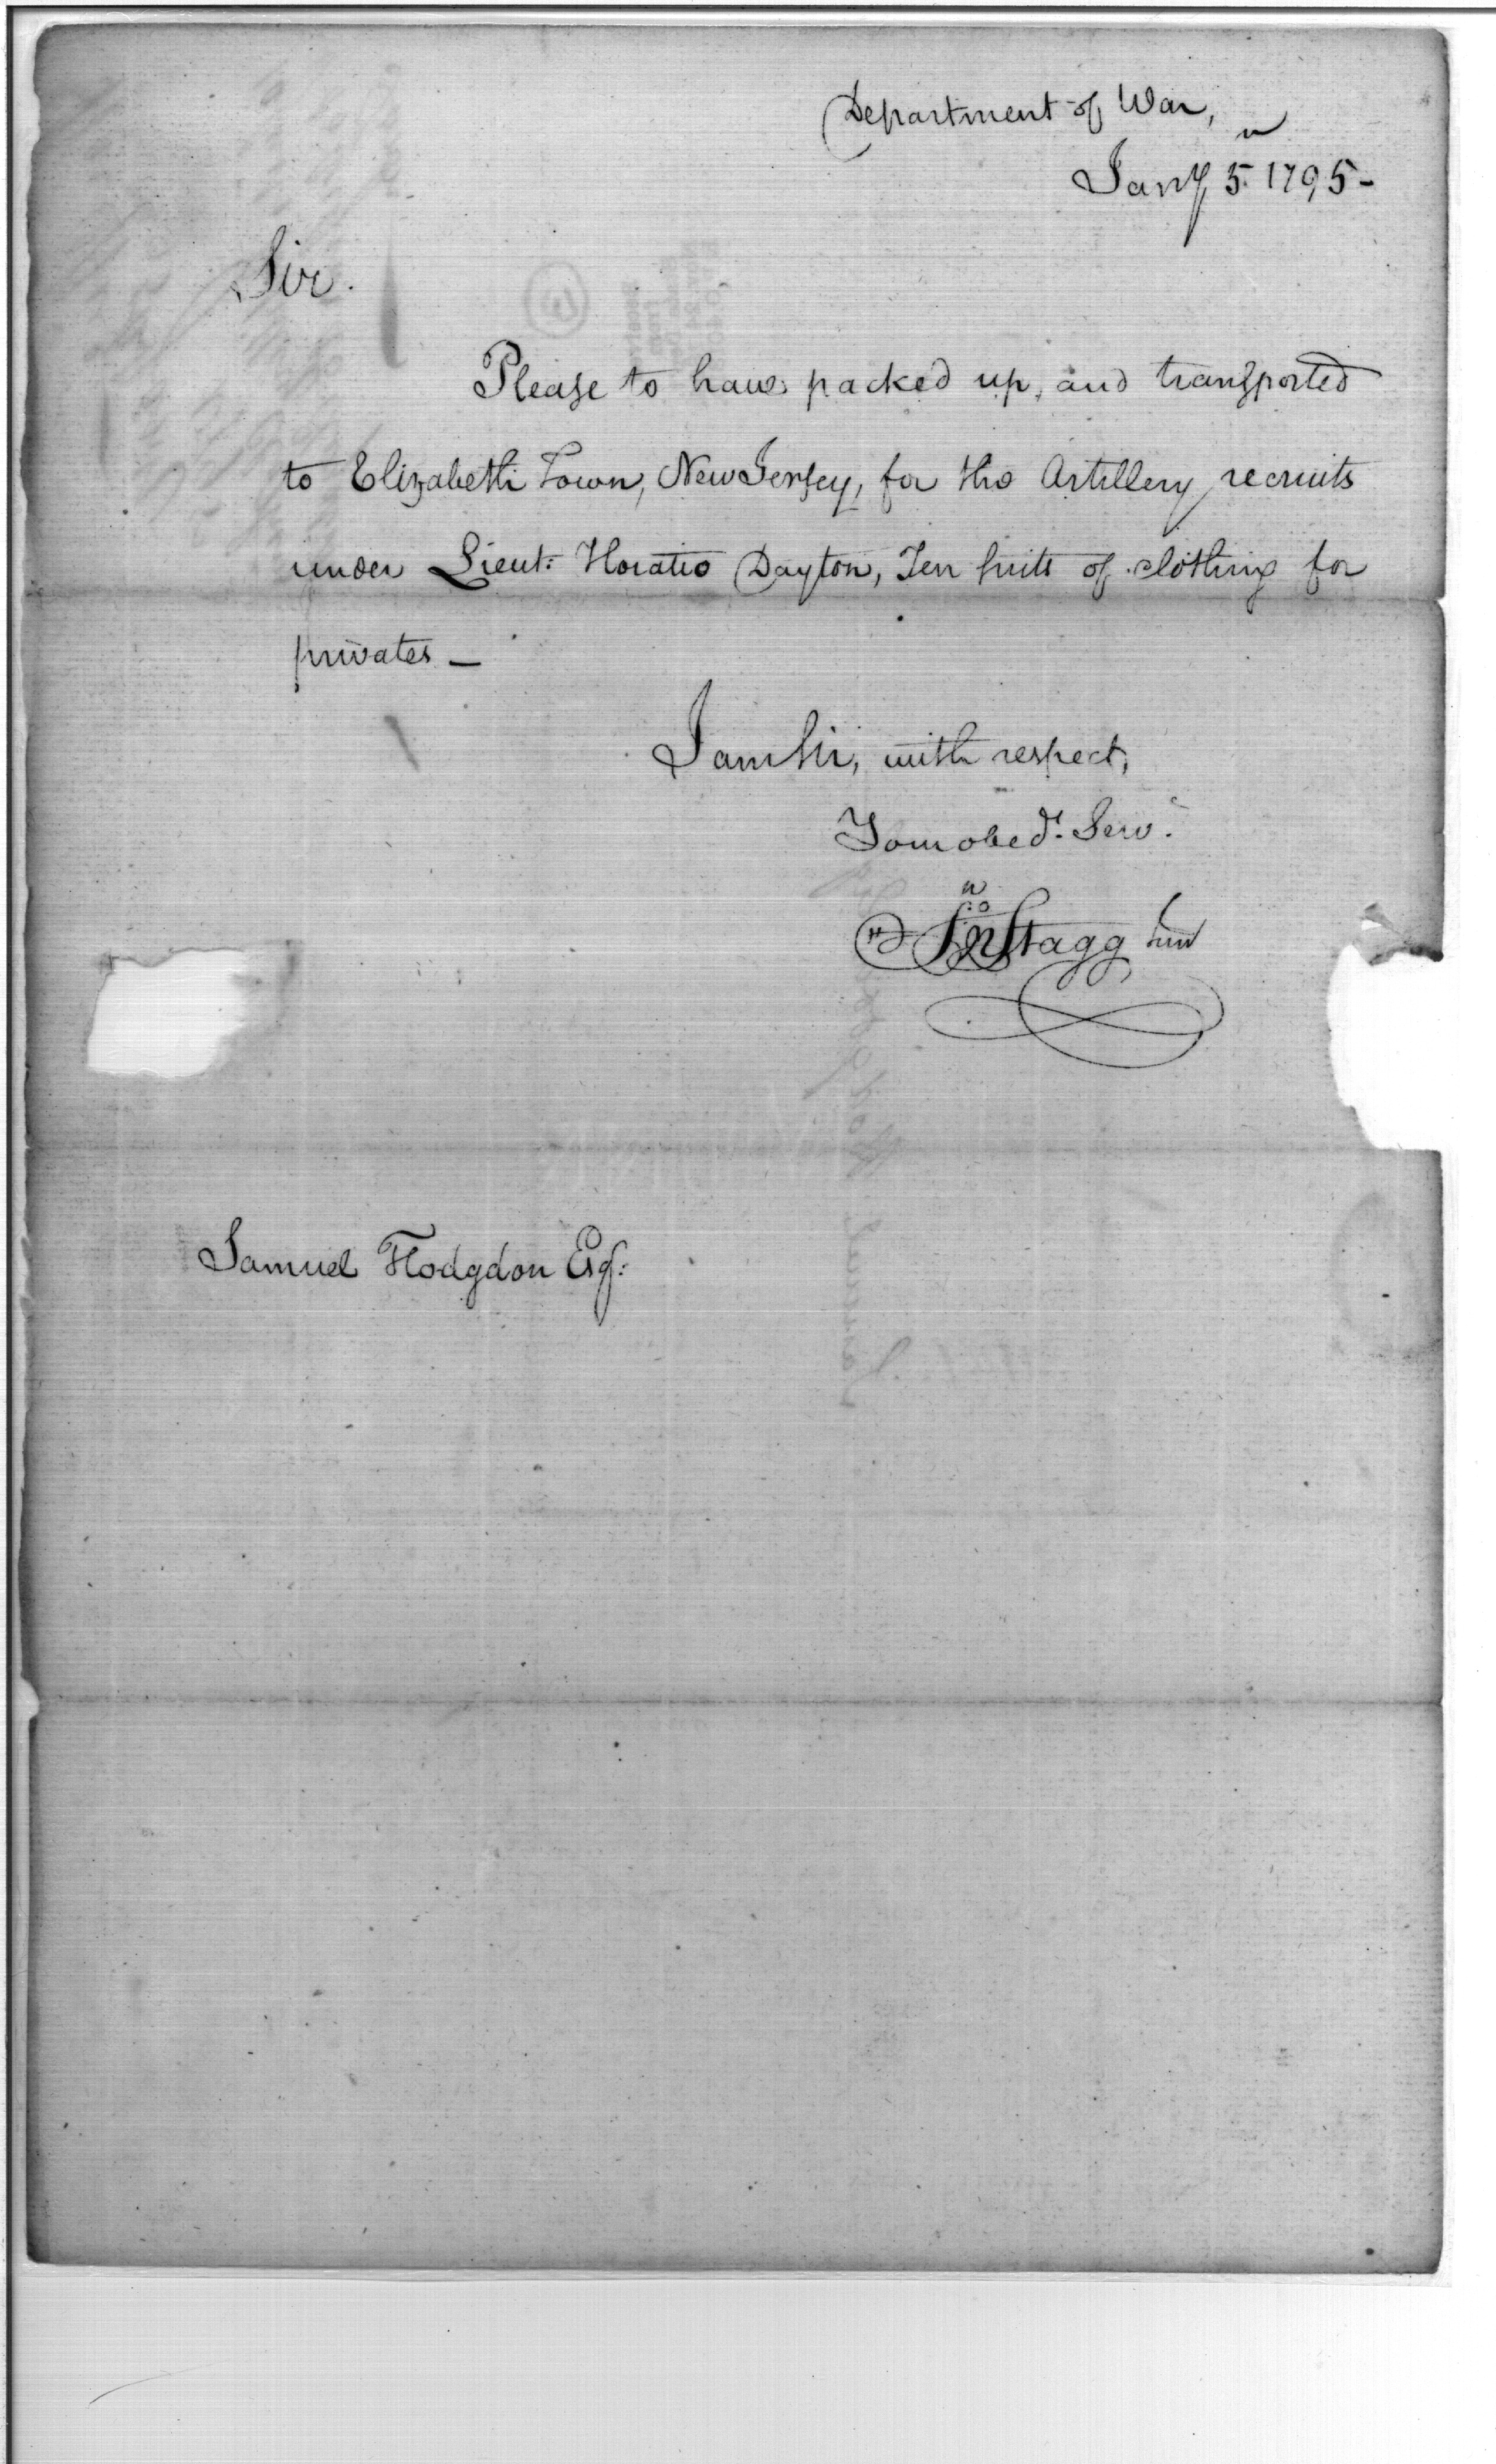 Department of War,
Jany 5. 1795 -
Sir.
Please to have packed up, and transported
to Elizabeth Town, New Jersey, for the Artillery recruits
under Lieut: Horatio Dayton, Ten suits of clothing for
privates -
I am Sir, with respect,
Your obed.t Serv.t
Jno Stagg Junr
Samuel Hodgdon Esq: